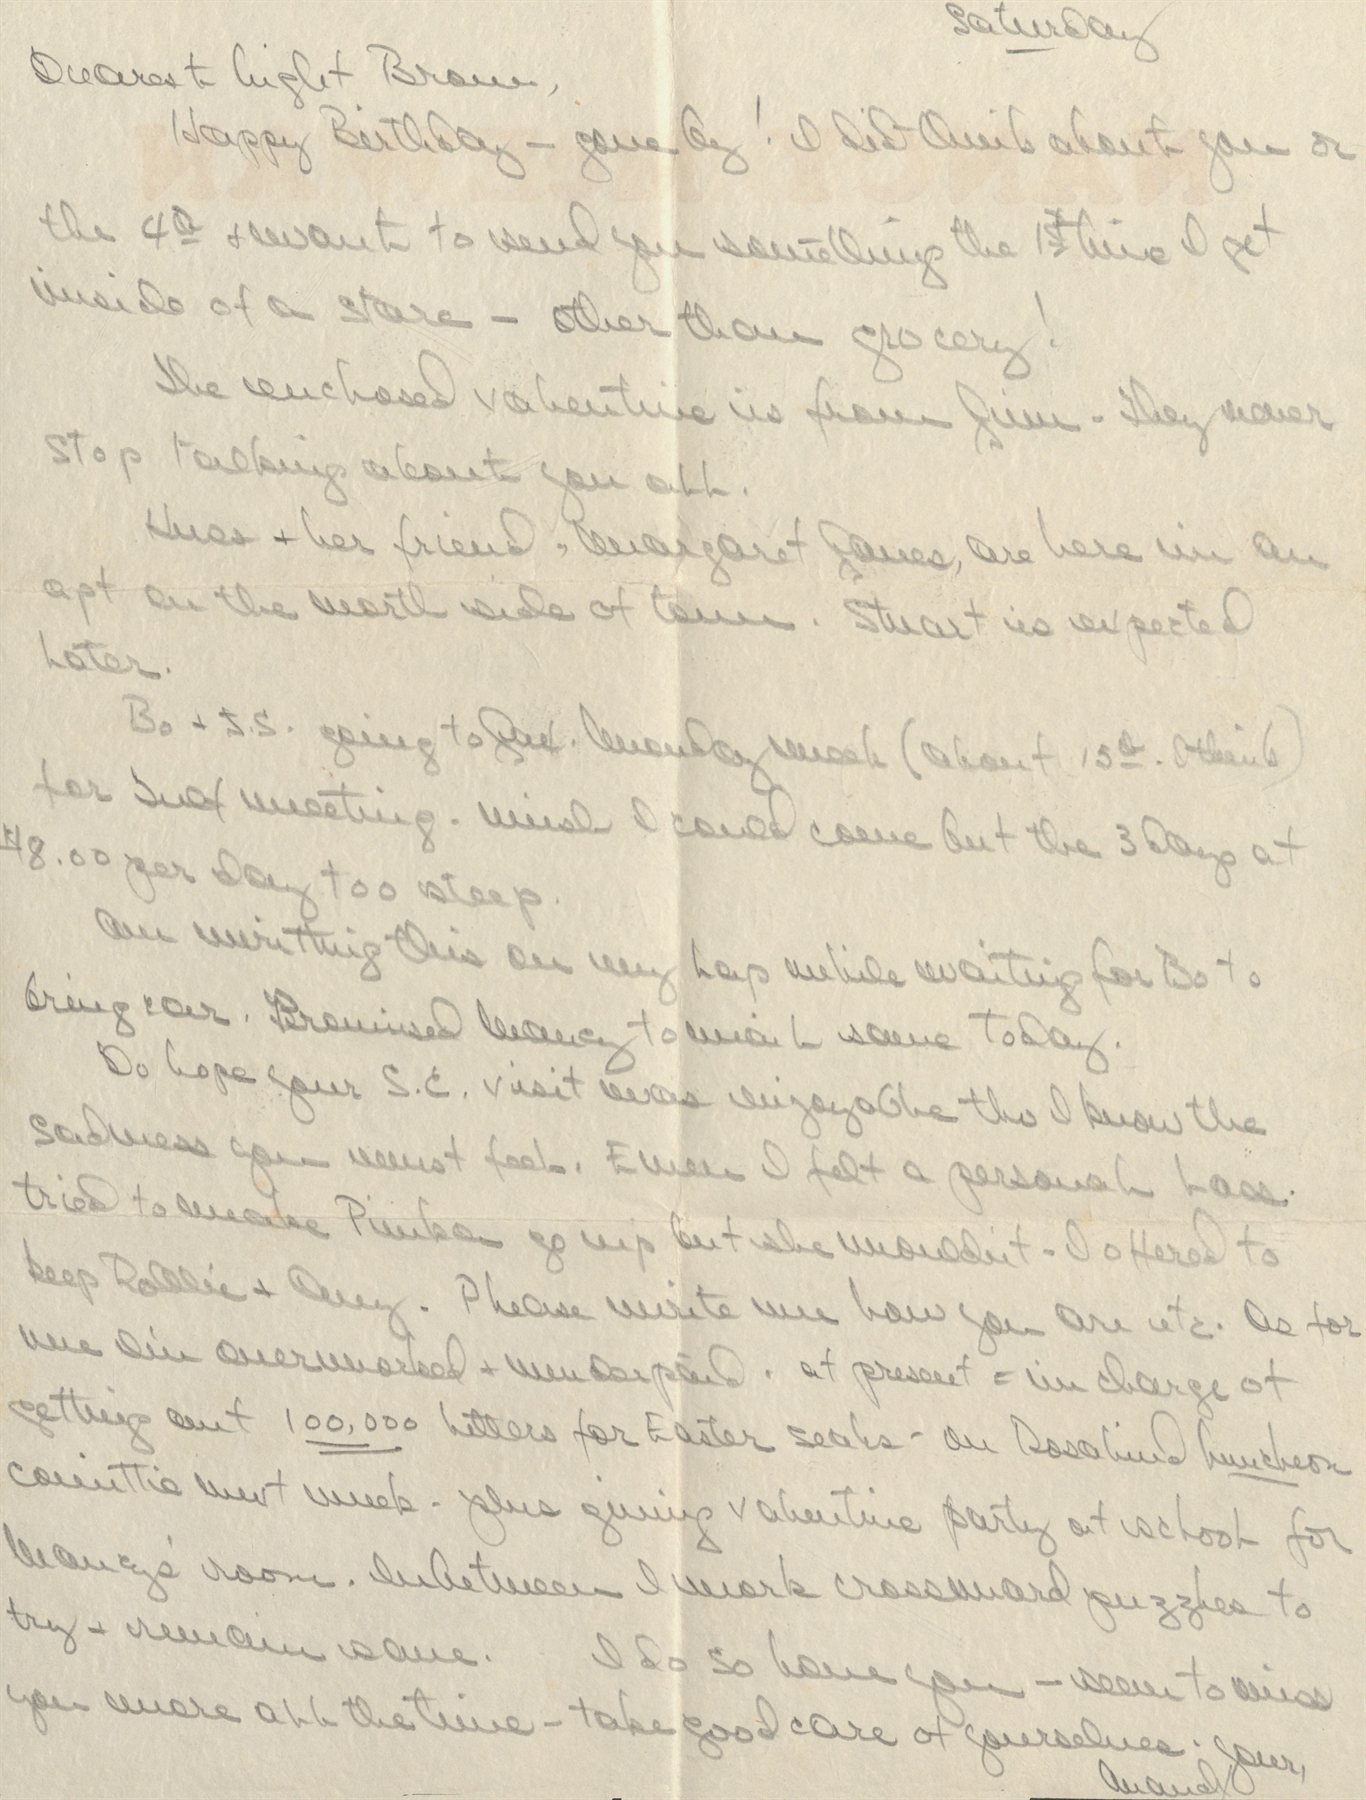 Saturday
Dearest Light Brown,
Happy Birthday - gone by! I did think about you on
the 4th + want to send you something the 1st time I get
inside of a store - other than grocery!
The enclosed valentine is from Jim. They never
stop talking about you all.
Ines + her friend, Margaret Jones, are here in an
apt on the north side of town. Stuart is expected
later.
Bo + S.S. going to Jax. Monday week (about 15th. I think)
for meeting. Wish I could come but the 3 days at
$18.00 per day too steep.
Am writing this on my lap while waiting for Bo to
bring car. Promised Nancy to mail same today.
Do hope your S.C. visit was enjoyable tho I know the
sadness you must feel. Even I felt a personal loss.
Tried to make go up but she wouldn't - I offered to
keep + Amy. Please write me how you are etc. As for
me I'm overworked + underpaid. at present = in charge of
getting out 100,000 letters for Easter seals - on Rosalind luncheon
comittie next week - plus giving valentine party at school for
Nancy's room. Inbetween I work crossword puzzles to
try + remain sane. I do so love you - seem to miss
you more all the time - take good care of yourselves. Your,